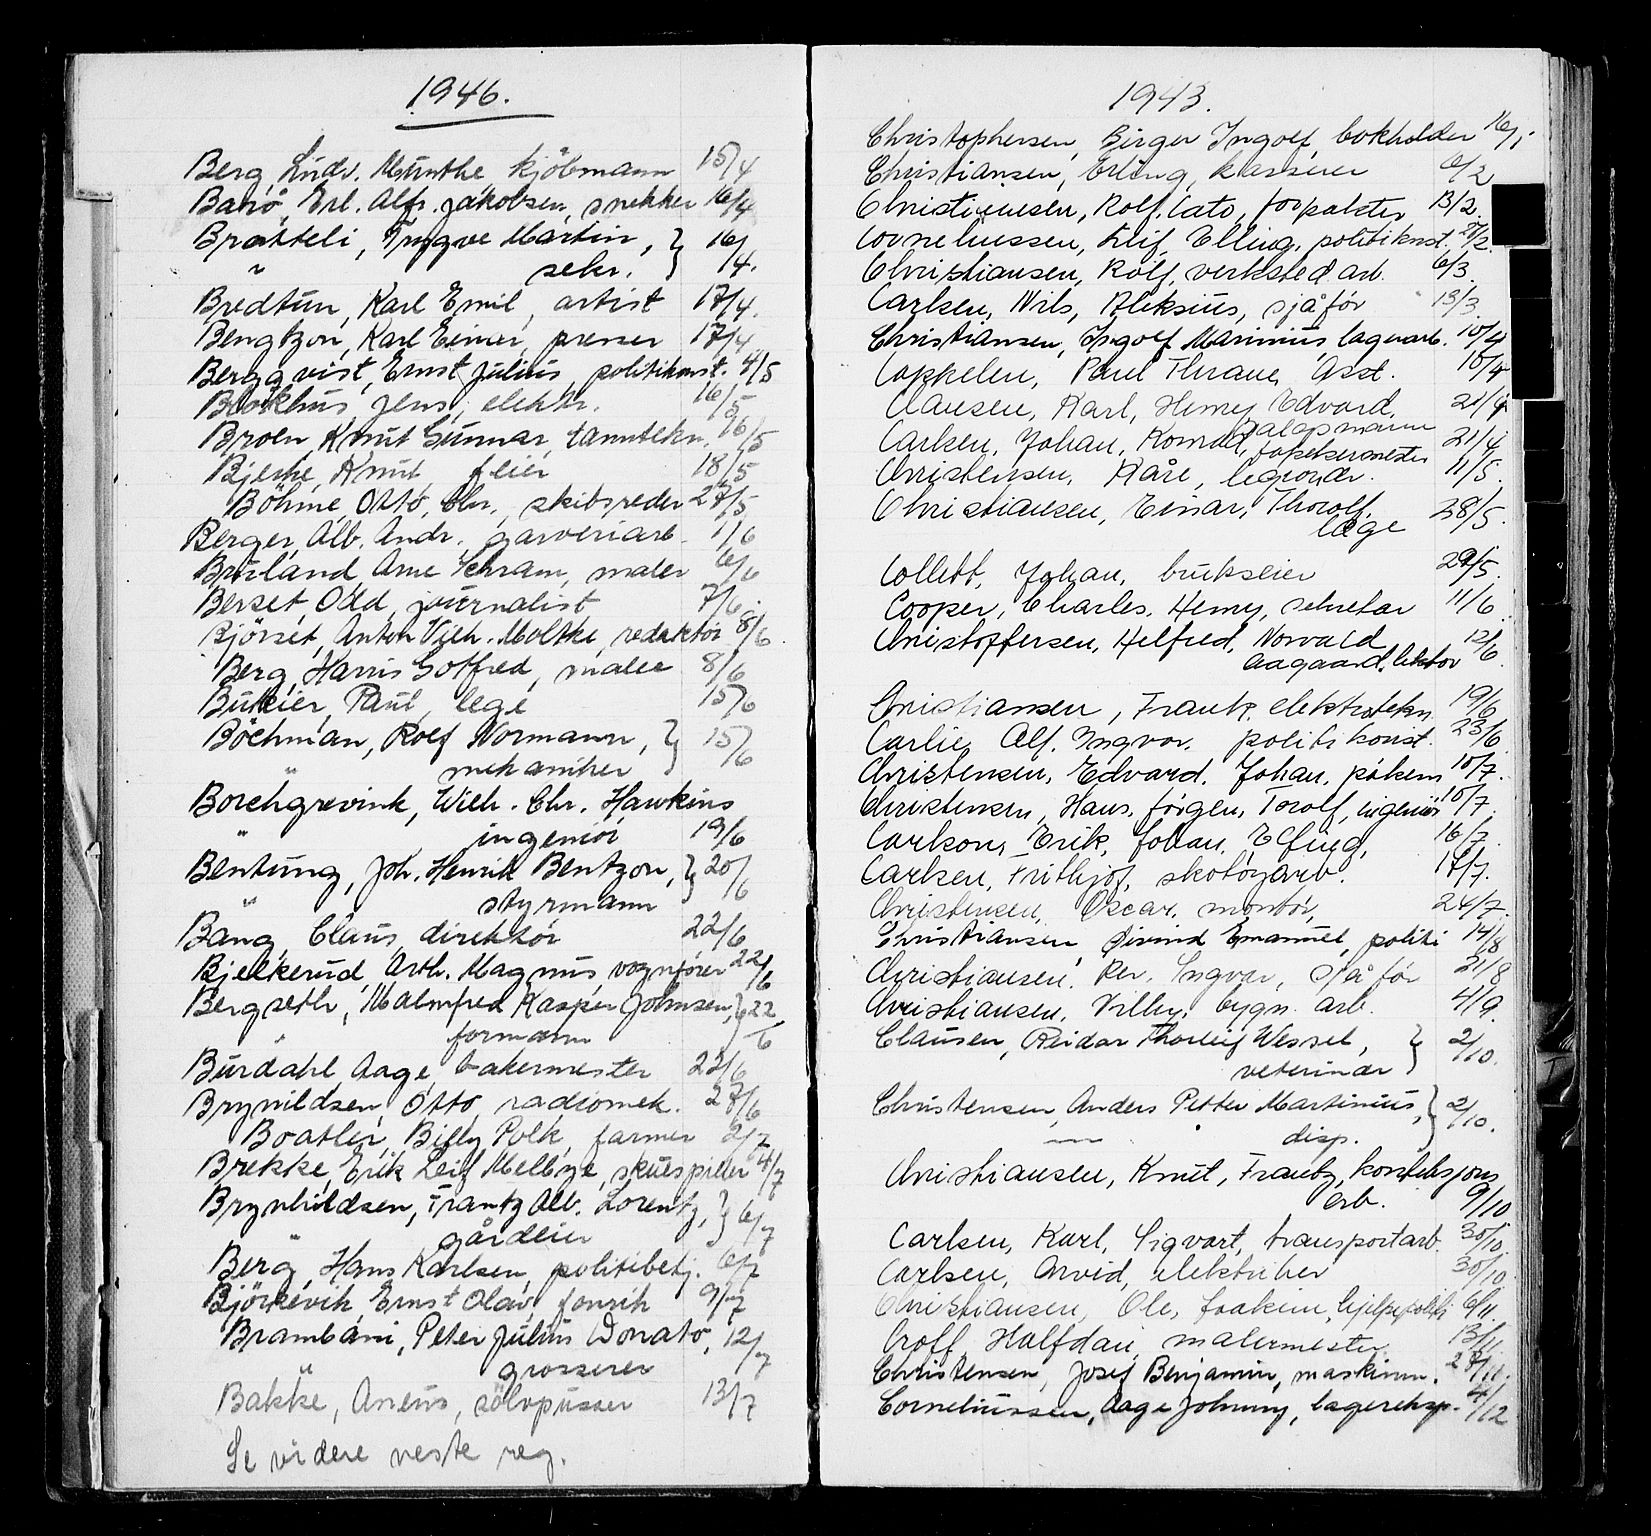 1946.
Berg, Ludv. Munthe kjöbmann 15/4
Barö, Erl. Alfr. Jakobsen, snekker 16/4
Bratteli, Trygve Martin, } 16/4.
" sekr.
Bredtun, Karl Emil, artist 17/4.
Bengtzon, Karl Einar, presser 17/4
Bergqvist, Ernst Julius, politikonst. 4/5
Blokhus, Jens, elektr. 16/5
Broen, Knut Gunnar, tanntekn. 16/5
Bjerke, Knut feier 18/5
Böhme, Otto, Chr., skibsreder 27/5
Berger, Alb. Andr. garveriarb. 1/6
Bruland, Arne Schram, maler 6/6
Berset, Odd, journalist 7/6.
Björset, Anton Vilh. Moltke, redaktör 8/6.
Berg, Harris Gotfred, maler 8/6
Buteier, Paul, lege 15/6
Böchman, Rolf Normann, } 15/6
" mekaniker
Borchgrevink, Wilh. Chr. Hawkins
" ingeniör 19/6
Bentung, Joh. Henrik Bentzon, } 20/6
" styrmann
Bang, Claus, direktör 22/6
Bjelkerud, Arth. Magnus, vognförer 22/6
Bergseth, Malmfred Kasper Johnsen, } 22/6
" formann
Burdahl, Aage, bakermester 22/6
Brynildsen, Otto, radiomek. 27/6
Boatler, Billy Polk, farmer 2/7
Brekke, Erik Leif Mellbye, skuespiller 4/7
Brynhildsen, Frantz Alb. Lorentz, } 6/7
" gårdeier
Berg, Hans Karlsen, politibetj. 6/7
Björkevik, Ernst Olav, 9/7
Brambani, Peter Julius Donato, 12/7
" grosserer
Bakke, Aneus, sölvpusser 13/7
Se videre neste reg.
1943.
Christophersen, Birger Ingolf, bokholder 16/1
Christiansen, Erling, kasserer 6/2
Christiansen, Rolf. Cato, forpakter 13/2.
Corneliussen, Leif, Elling, politikonst. 27/2.
Christiansen, Rolf, verksted arb. 6/3.
Carlsen, Nils, Aleksius, sjåför 13/3.
Christiansen, Ingolf Marinius, lagerarb. 10/4
Coppelen, Paul Thrane, Asst. 10/4
Clausen, Karl, Henry, Edvard, 21/4
galopmann
Carlsen, Johan, Konrad, tapetsermester 21/4
Christensen, Kåre, legionär. 11/5.
Christiansen, Einar, Thorolf, 28/5.
læge
Collett, Johan, brukseier 29/5.
Cooper, Charles, Henry, sekretær 11/6.
Christoffersen, Helfred, Norvald 12/6.
Aagaard, lektor
Christiansen, Frank, elektrotekn. 19/6
Carlie, Alf. Ingvar, politikonst. 23/6.
Christensen, Edvard, Johan, 10/7.
Christensen, Hans, Jörgen, Torolf, ingeniör 10/7.
Carlson, Erik, Johan, Elfing, 16/7.
Carlsen, Frithjof, skotöyarb. 17/7.
Christensen, Oscar, montör, 24/7.
Christiansen, Øivind Emanuel, politi 14/8
Christiansen, Per, Ingvar, sjåför 21/8
Christiansen, Villy, bygn. arb. 4/9.
Clausen, Reidar Thorleif Wessel, } 2/10.
veterinær
Christensen, Anders Petter Martinius, } 2/10.
— " — disp.
Christiansen, Knut, Frantz, konfeksjons
arb. 9/10
Carlsen, Karl, Sigvart, transportarb. 30/10.
Carlsen, Arvid, elektriker 30/10.
Christiansen, Ole, Joakim, hjelpepoliti 6/11.
Croff, Halfdan, malermester 13/11.
Christensen, Josef Benjamin, maskinm. 27/11.
Corneliussen, Aage Johnny, lagereksp. 4/12